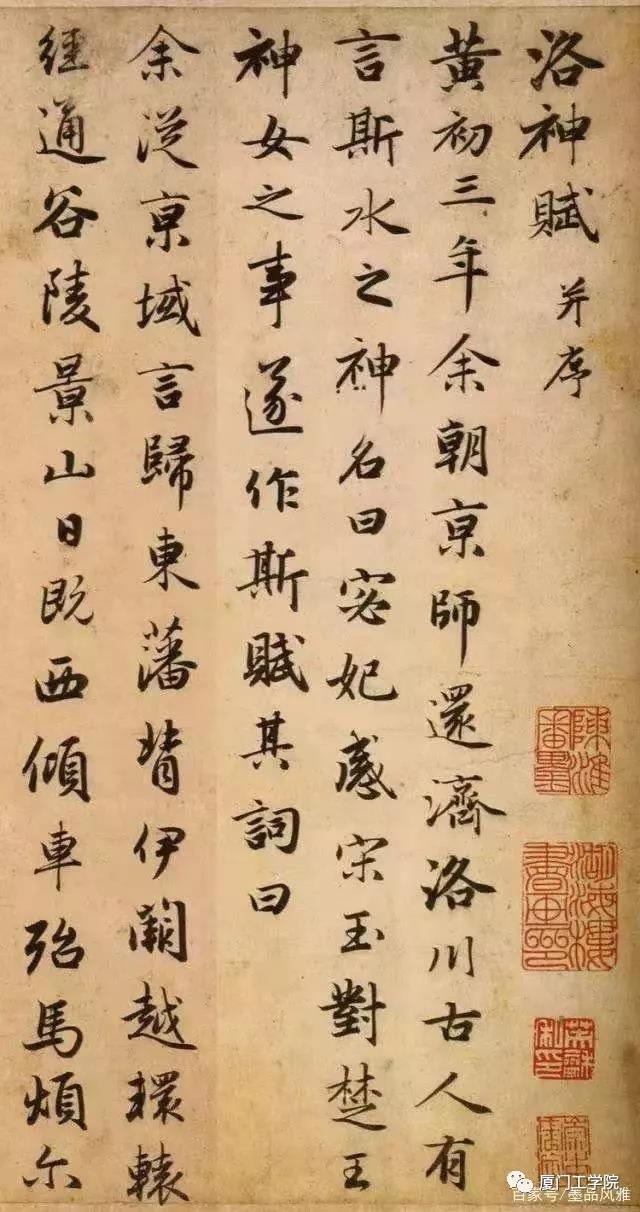 洛神賦 并序
黄初三年余朝亰師還濟洛川古人有
言斯水之神名曰宓妃感宋玉對楚王
神女之事遂作斯賦其詞曰
余從亰域言歸東藩背伊闕越轘轅
經通谷陵景山日既西傾車殆馬煩尔
厦门工学院
百家号/墨品风雅